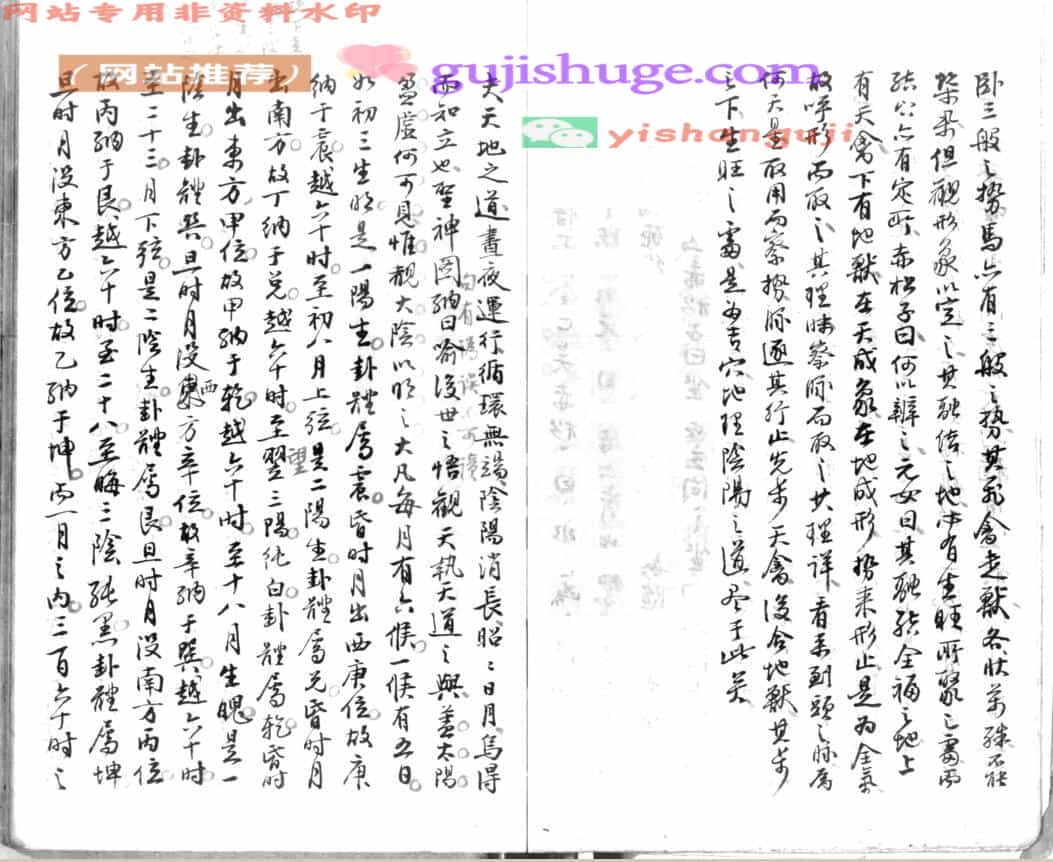 网站专用非资料水印
（网站推荐）
gujishuge.com
yishanguji
卧三般之势馬六有三般之势其飛禽走獸各状萬殊不能
槩举但觀形象以定之其融结之地中有生旺所聚之處而
结穴六有定所赤松子曰何以辨之元女曰其融结全福之地上
有天禽下有地獸在天成象在地成形势来形止是为全氣
故呼形而取之其理昧察脉而取之其理详看来到頭之脉属
何天星取用而察势脉逐其行止先步天禽後合地獸其步
之下生旺之處是为吉穴地理陰陽之道尽于此矣
夫天地之道晝夜運行循環無端陰陽消長昭〻日月焉得
而知立也聖神图纳曰喻後世之悟觀天执天道之與盖太陽
句有错误不可读
盈虚何可見惟觀大陰以明之大凡每月有六候一候有五日
如初三生明是一陽生卦體属震昏时月出西庚位故庚
纳于震越六十时至初八月上弦是二陽生卦體属兑昏时月
出南方故丁纳于兑越六十时至望三陽纯白卦體属乾昏时
月出東方甲位故甲纳于乾越六十时至十八月生魄是一
陰生卦體巽旦时月没西方辛位故辛纳于巽越六十时
至二十三月下弦是二陰生卦體属艮旦时月没南方丙位
故丙纳于艮越六十时至二十八至晦三陰纯黑卦體属坤
旦时月没東方乙位故乙纳于坤而一月之内三百六十时之